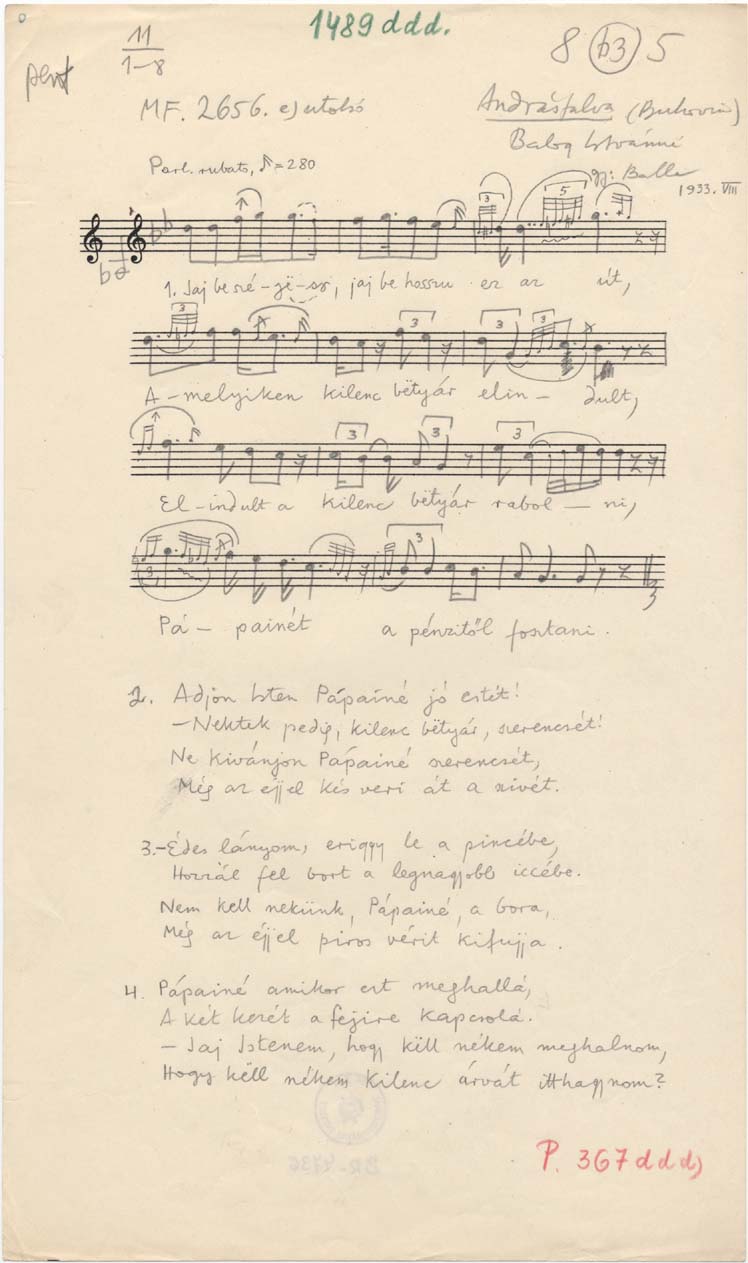 1489 ddd.
11
1-8
8 b3 5
MF. 2656. e) utolsó
Andrásfalva (Bukovina)
Balog Istvánné
Parl. rubato, ♪=280
gy: Balla
1933. VIII
3
5
1. Jaj be szé-gë-sz, jaj be hosszu ez az út,
3 3 3 3
A-melyiken kilenc bëtyár elin- dult,
3 3 3
El-indult a kilenc bëtyár rabol-ni,
3 3
Pá-painét a pénzitől fosztani.
3
2. Adjon Isten Pápainé jó estét!
-Nektek pedig, kilenc bëtyár, szerencsét!
Ne kivánjon Pápainé szerencsét,
Még az éjjel kés veri át a szivét.
3.-Édes lányom, eriggy le a pincébe,
Hozzál fel bort a legnagyobb iccébe.
Nem kell nekünk, Pápainé, a bora,
Még az éjjel piros vérit kifujja.
4. Pápainé amikor ezt meghallá,
A két kezét a fejire kapcsolá.
- Jaj Istenem, hogy këll nékem meghalnom,
Hogy këll nékem kilenc árvát itthagynom?
P. 367 ddd)